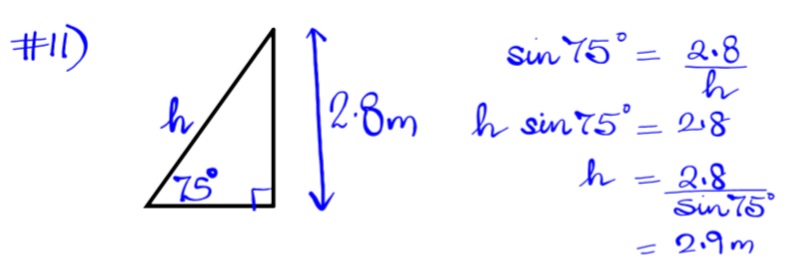 #11)
h
75°
2.8m
sin 75° = 2.8/h
h sin 75° = 2.8
h = 2.8/sin 75°
= 2.9m